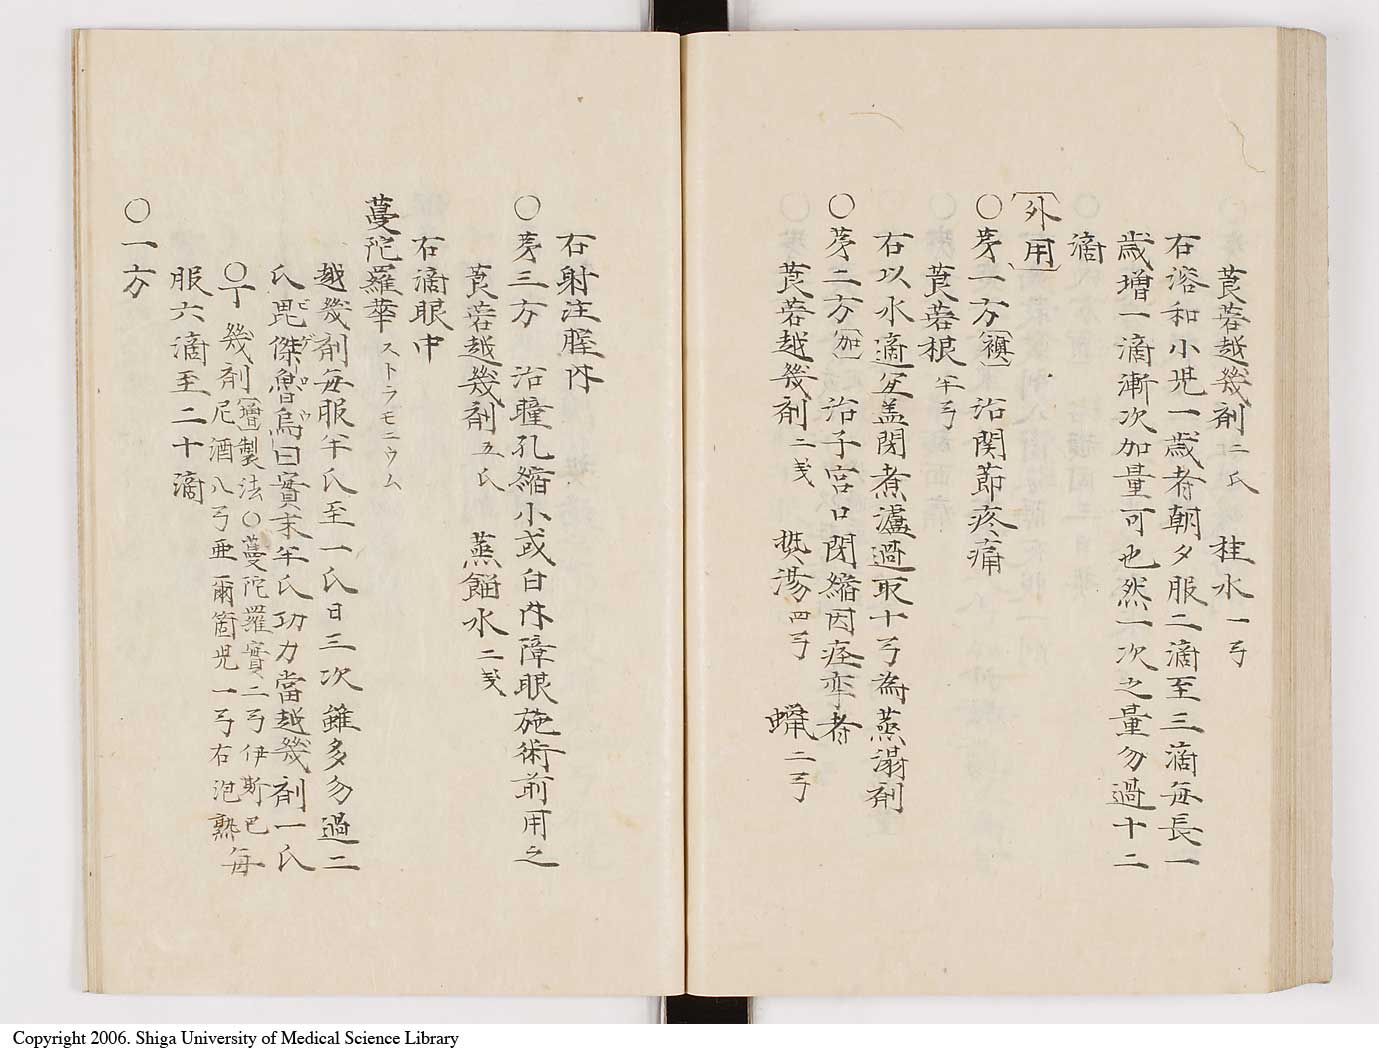 莨菪越幾剤二氏 桂水一弓
右溶和小児一歳者朝夕服二滴至三滴毎長一
歳増一滴漸次加量可也然一次之量勿過十二
滴
外用
〇芽一方〔襖〕治関節疼痛
莨菪根半弓
右以水適宜盖閉煮濾過取十弓為蒸溻剤
〇芽二方〔加〕治子宮口閉縮因痙攣者
莨菪越幾剤二戔 㷟湯四弓 蠟二弓
右射注腟内
〇芽三方 治瞳孔縮小或白内障眼施術前用之
莨菪越幾剤五氏 蒸餾水二戔
右滴眼中
蔓陀羅華ストラモニウム
越幾剤毎服半氏至一氏日三次雖多勿過二
氏毘傑魯烏曰實末半氏功力當越幾剤一氏
〇丁幾剤〔醫製法〇蔓陀羅實二弓伊斯巴
尼酒八弓亜爾箇児一弓右泡熟毎
服六滴至二十滴
〇一方
Copyright 2006. Shiga University of Medical Science Library